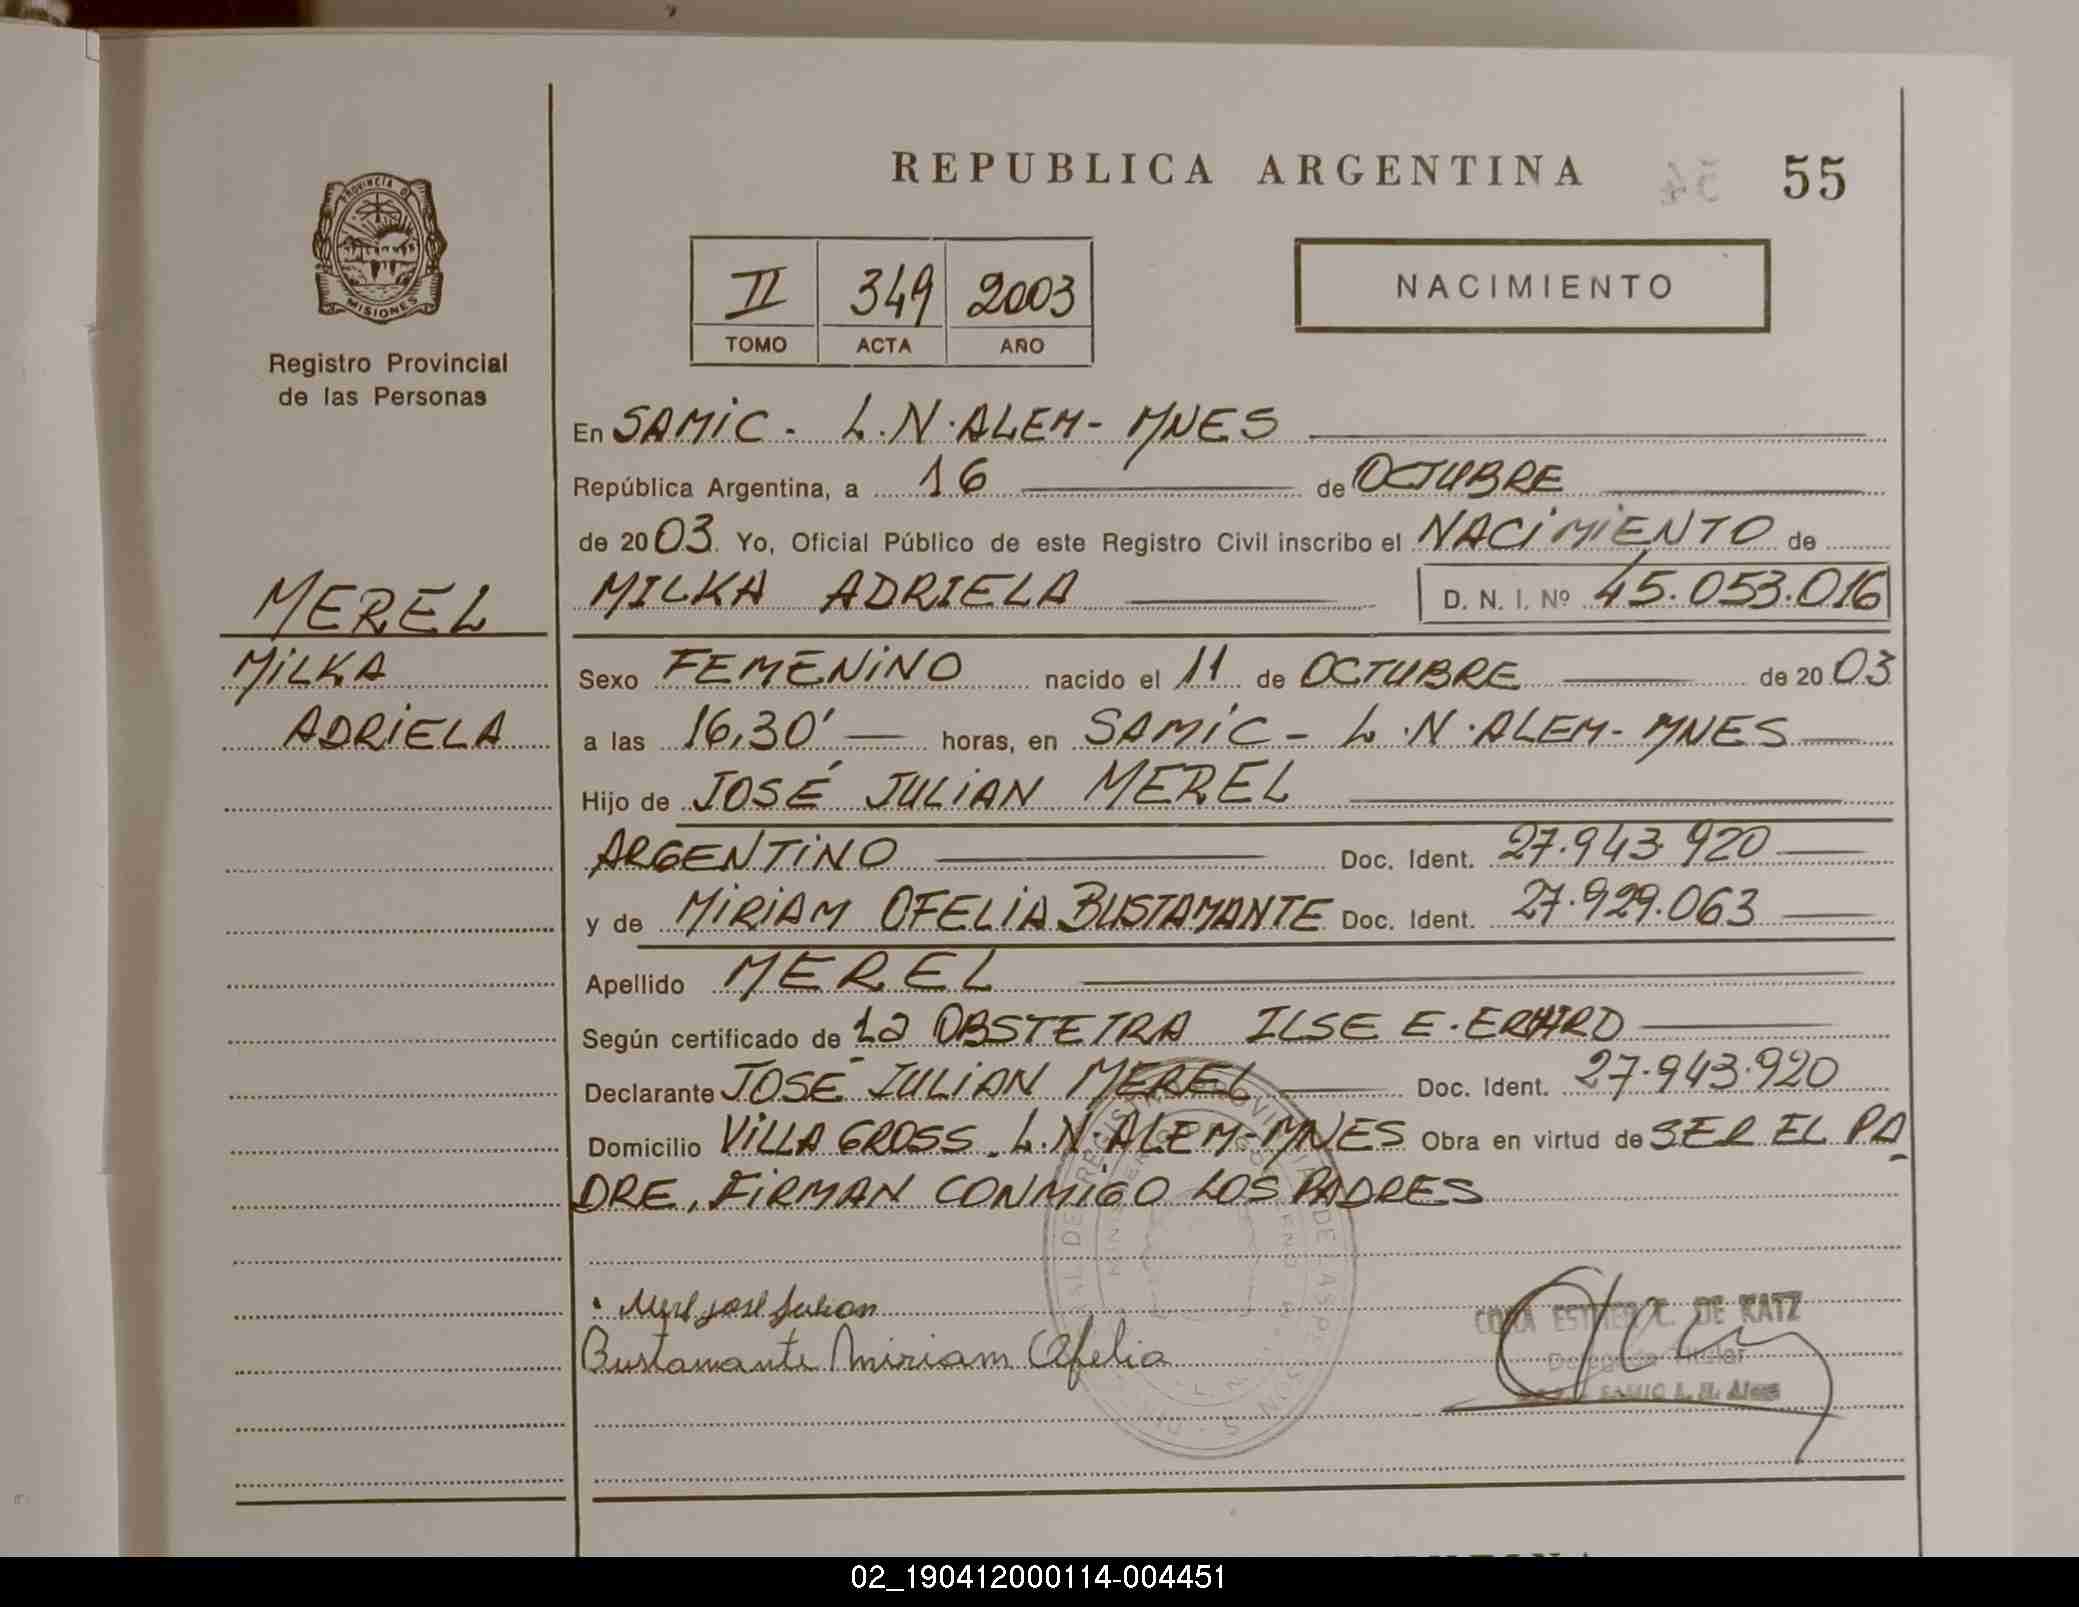 REPUBLICA ARGENTINA
54
55
PROVINCIA DE
MISIONES
Registro Provincial
de las Personas
II 349 2003
TOMO ACTA AÑO
NACIMIENTO
En SAMIC - L.N.ALEM - MNES
República Argentina, a 16 de OCTUBRE
de 2003. Yo, Oficial Público de este Registro Civil inscribo el NACIMIENTO de
MILKA ADRIELA D. N. I. Nº 45.053.016
MEREL
MILKA
ADRIELA
Sexo FEMENINO nacido el 11 de OCTUBRE de 2003
a las 16,30' horas, en SAMIC - L.N.ALEM - MNES
Hijo de JOSÉ JULIAN MEREL
ARGENTINO Doc. Ident. 27.943.920
y de MIRIAM OFELIA BUSTAMANTE Doc. Ident. 27.929.063
Apellido MEREL
Según certificado de La OBSTETRA ILSE E.
Declarante JOSÉ JULIAN MEREL Doc. Ident. 27.943.920
Domicilio VILLA GROSS - L.N.ALEM - MNES Obra en virtud de SER EL PA
DRE, FIRMAN CONMIGO LOS PADRES
Merel José Julian
Bustamante Miriam Ofelia
ESTHER C. DE KATZ
Delegada Titular
SAMIC L. N. Alem
02_190412000114-004451